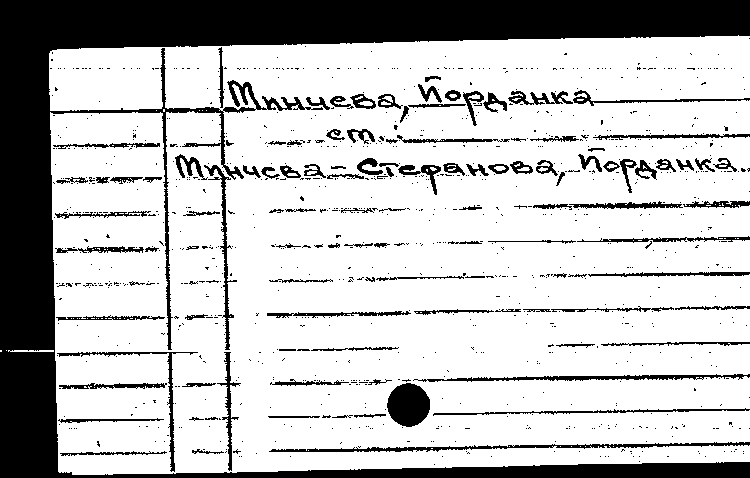 Минчева, Йорданка
ст.:
Минчева-Стефанова, Йорданка.